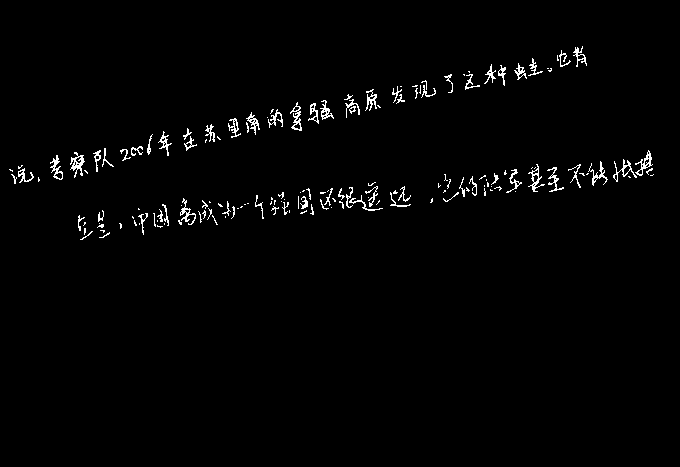 说,考察队2006年在苏里南的拿骚高原发现了这种蛙。它背
但是,中国离成为一个强国还很遥远,它的陆军甚至不能抵挡